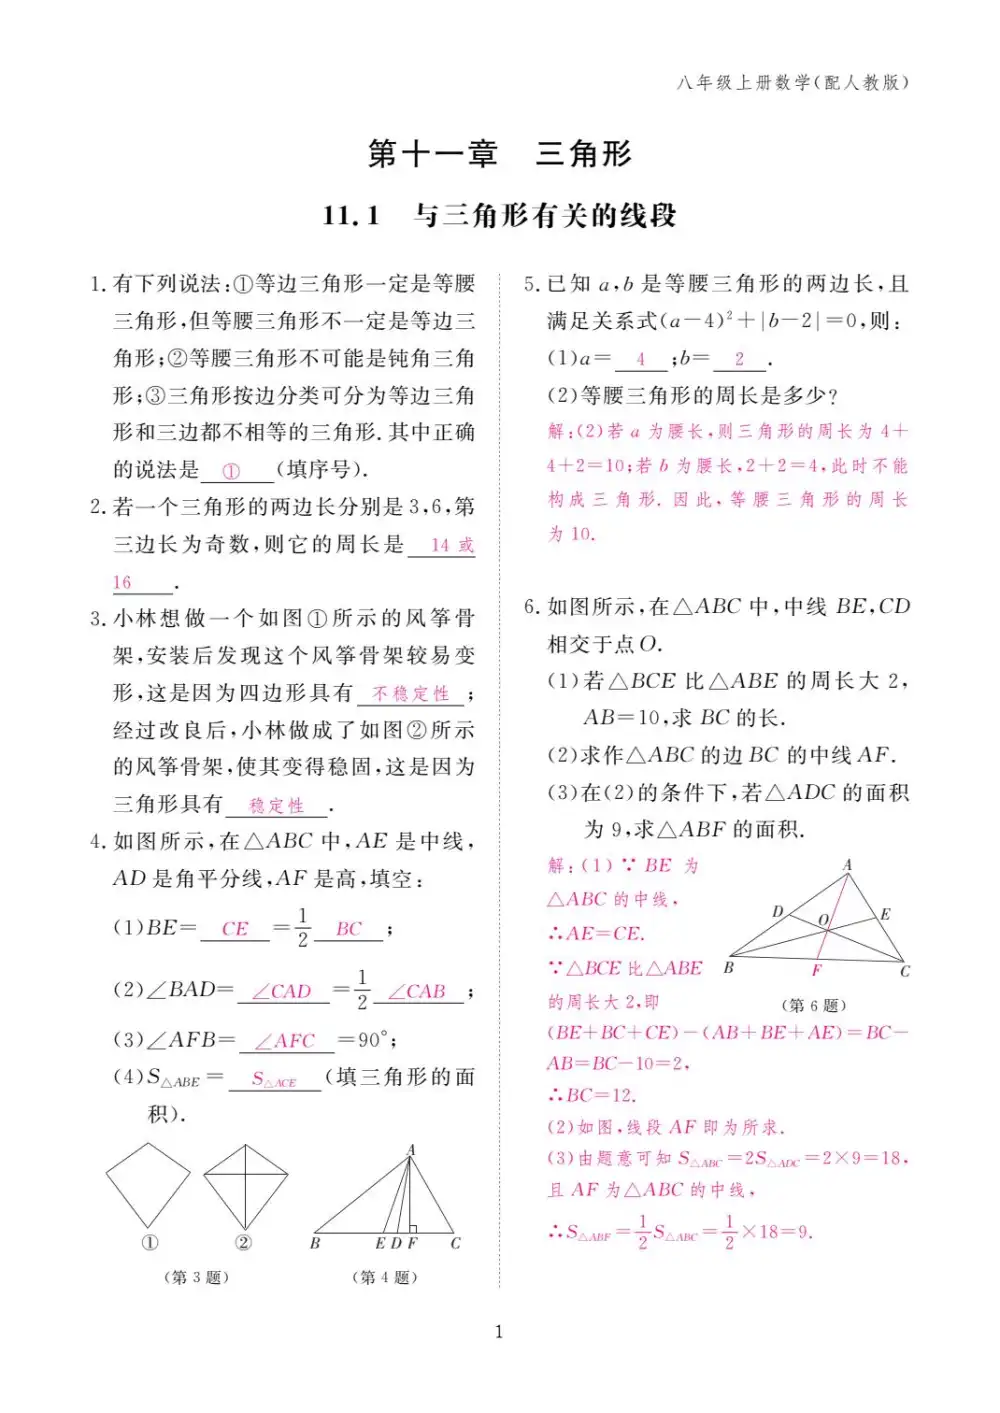 八年级上册数学(配人教版)
第十一章 三角形
11.1 与三角形有关的线段
1.有下列说法:①等边三角形一定是等腰
三角形,但等腰三角形不一定是等边三
角形;②等腰三角形不可能是钝角三角
形;③三角形按边分类可分为等边三角
形和三边都不相等的三角形.其中正确
的说法是 ① (填序号).
2.若一个三角形的两边长分别是3,6,第
三边长为奇数,则它的周长是 14或
16 .
3.小林想做一个如图①所示的风筝骨
架,安装后发现这个风筝骨架较易变
形,这是因为四边形具有 不稳定性 ;
经过改良后,小林做成了如图②所示
的风筝骨架,使其变得稳固,这是因为
三角形具有 稳定性 .
4.如图所示,在△ABC中,AE是中线,
AD是角平分线,AF是高,填空:
(1)BE= CE =1/2 BC ;
(2)∠BAD= ∠CAD =1/2 ∠CAB ;
(3)∠AFB= ∠AFC =90°;
(4)S△ABE= S△ACE (填三角形的面
积).
① ②
(第3题)
A
B E D F C
(第4题)
5.已知a,b是等腰三角形的两边长,且
满足关系式(a-4)²+|b-2|=0,则:
(1)a= 4 ;b= 2 .
(2)等腰三角形的周长是多少?
解:(2)若a为腰长,则三角形的周长为4+
4+2=10;若b为腰长,2+2=4,此时不能
构成三角形.因此,等腰三角形的周长
为10.
6.如图所示,在△ABC中,中线BE,CD
相交于点O.
(1)若△BCE比△ABE的周长大2,
AB=10,求BC的长.
(2)求作△ABC的边BC的中线AF.
(3)在(2)的条件下,若△ADC的面积
为9,求△ABF的面积.
解:(1)∵BE为
△ABC的中线,
∴AE=CE.
∵△BCE比△ABE
的周长大2,即
A
D O E
B F C
(第6题)
(BE+BC+CE)-(AB+BE+AE)=BC-
AB=BC-10=2,
∴BC=12.
(2)如图,线段AF即为所求.
(3)由题意可知S△ABC=2S△ADC=2×9=18,
且AF为△ABC的中线,
∴S△ABF=1/2S△ABC=1/2×18=9.
1